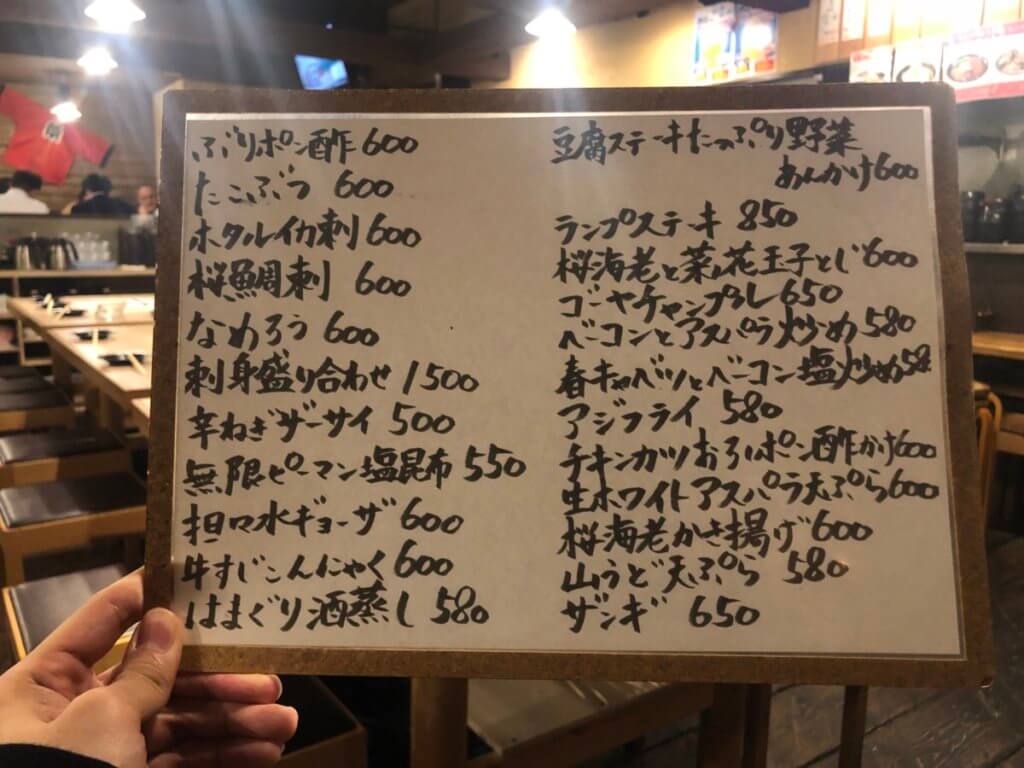 ぶりポン酢 600
たこぶつ 600
ホタルイカ刺 600
桜鯛刺 600
なめろう 600
刺身盛り合わせ 1500
辛ねぎザーサイ 500
無限ピーマン塩昆布 550
担々水ギョーザ 600
牛すじこんにゃく 600
はまぐり酒蒸し 580
豆腐ステーキたっぷり野菜
あんかけ 600
ランプステーキ 850
桜海老と菜の花玉子とじ 600
ゴーヤチャンプルー 650
ベーコンとアスパラ炒め 580
春キャベツとベーコン塩炒め 58
アジフライ 580
チキンカツおろしポン酢かけ 600
生ホワイトアスパラ天ぷら 600
桜海老かき揚げ 600
山うど天ぷら 580
ザンギ 650